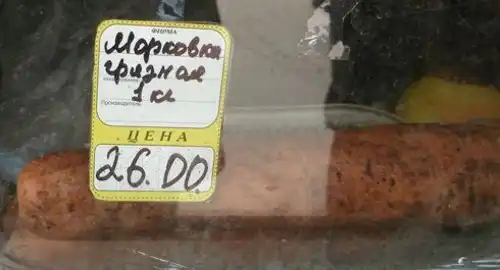 ФИРМА
Морковка
грязная
1 кг
Производитель
ЦЕНА
26.00